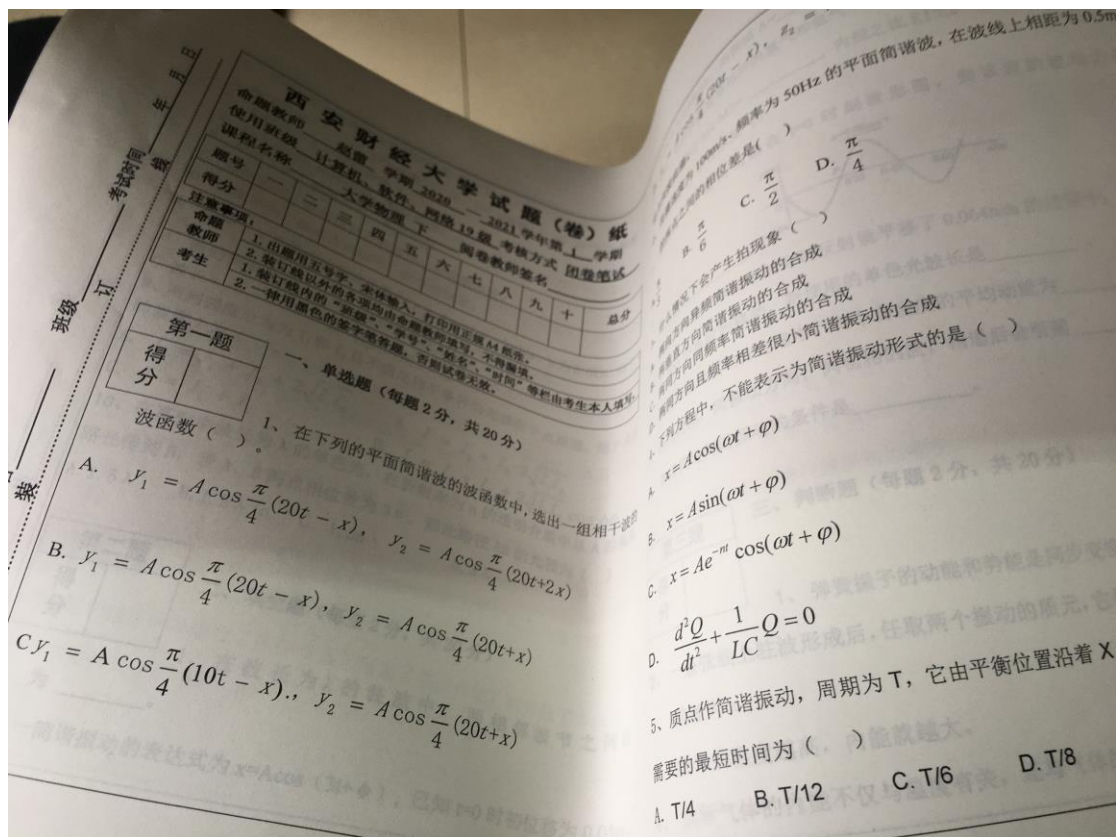 西安财经大学试题（卷）纸
命题教师 赵蕾 学期 2020 — 2021 学年第 1 学期
使用班级 计算机、软件、网络 19 级 考核方式 闭卷笔试
课程名称 大学物理 下 阅卷教师签名
题号 一 二 三 四 五 六 七 八 九 十 总分
得分
注意事项：
命题教师
1. 出题用五号字、宋体输入，打印用正规 A4 纸张。
2. 装订线以外的各项均由命题教师填写，不得漏填。
考生
1. 装订线内的“班级”、“学号”、“姓名”、“时间”等栏由考生本人填写。
2. 一律用黑色的签字笔答题，否则试卷无效。
年 月 日
考试时间
线
班级
订
装
第一题
得分
一、单选题（每题 2 分，共 20 分）
1、在下列的平面简谐波的波函数中，选出一组相干波的
波函数（ ）。
A. y₁ = A cos π/4 (20t − x)， y₂ = A cos π/4 (20t+2x)
B. y₁ = A cos π/4 (20t − x)， y₂ = A cos π/4 (20t+x)
C y₁ = A cos π/4 (10t − x)., y₂ = A cos π/4 (20t+x)
π/4 (20t − x)，
100m/s、频率为 50Hz 的平面简谐波，在波线上相距为 0.5m
之间的相位差是( )
B. π/6 C. π/2 D. π/4
情况下会产生拍现象（ ）
同方向异频简谐振动的合成
垂直方向简谐振动的合成
C. 两同方向同频率简谐振动的合成
D. 两同方向且频率相差很小简谐振动的合成
4、下列方程中，不能表示为简谐振动形式的是（ ）
A. x = A cos(ωt + φ)
B. x = A sin(ωt + φ)
C. x = Ae⁻ⁿᵗ cos(ωt + φ)
D. d²Q/dt² + 1/LC Q = 0
5、质点作简谐振动，周期为 T，它由平衡位置沿着 X
需要的最短时间为（ ）
A. T/4 B. T/12 C. T/6 D. T/8